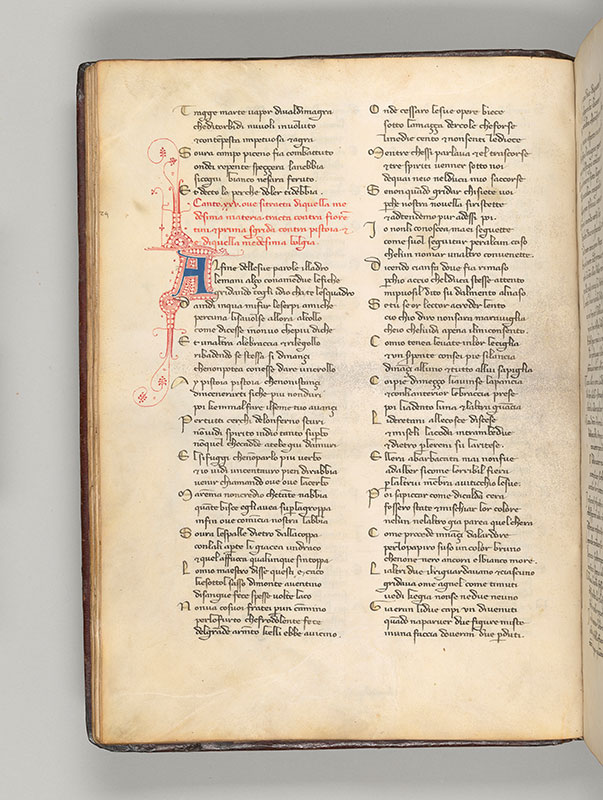 Tragge marte vapor divaldimagra
cheditorbidi nuvoli involuto
& contempesta impetuosa & agra
Soura campo piceno fia combattuto
ondei repente speççera lanebbia
sicogni bianco nesara feruto.
Et decto lo perche doler tidebbia.
Canto. xxv. ove sitracta diquella me
desima materia. tracta contra fiore
tini & prima sgrida contra pistoia &
diquella medesima bolgia.
Alfine dellesue parole illadro
lemani alço conamedue lefiche
gridando togli dio chate lesquadro
Daindi inqua mifur leserpi amiche
peruna lisavolse allora alcollo
come dicesse nonvo chepiu diche
Et unaltra alebraccia & rilegollo
ribadendo se stessa si dinançi
chenonpotea conesse dare uncrollo
Ay pistoia pistoia chenonistançi
dincenerarti siche piu nonduri
poi kenmalfare ilseme tuo avançi
Pertutti cerchi delonferno scuri
nonvidi spirito indio tanto supbo
nonquel checadde atebe giu damuri
El sifuggi chenonparlo piu verbo
& io vidi uncentauro pien dirabbia
venir chiamando ove ove lacerbo
Marema noncredio chetante nabbia
quante bisce egli avea suplagroppa
infin ove comincia nostra labbia
Soura lespalle dietro dallacoppa
conlali apte li giacea undraco
& quel affuoca qualunque sintoppa
Lomio maestro disse questi e caco
kesottol sasso dimonte aventino
disangue fece spesse volte laco
Nonva cosuoi fratei pun camino
perlofurto chefrodolente fece
delgrande armento kelli ebbe avicino.
Onde cessaro lesue opere biece
sotto lamazza dercole cheforse
linedie cento & nonsenti lediece
Mentre chessi parlava & el trascorse
& tre spiriti venner sotto noi
dequai neio nelduca mio saccorse
Senonquado gridar chisiete voi
pche nostra novella siristette
& adtendemo pur adessi poi.
Io nonli conoscea maei seguette
come suol seguitar peralcun caso
chelun nomar unaltro convenette.
Dicendo cianfa dove fia rimaso
perchio accio chelduca stesse attento
mipuosil dito su dalmento alnaso.
Se tu se or lector acreder lento
cio chio diro nonsara maraviglia
cheio chelvidi apena ilmiconsento.
Comio tenea levate inlor leciglia
& un serpente consei pie silancia
dinançi alluno & tutto allui sapiglia
Copie dimeçço liavinse lapancia
& conlianterior lebraccia prese
poi liadento luna & laltra guancia
Lideretani allecosce distese
& miseli lacoda intramedue
& dietro plereni su laritese.
Ellera abarbacata mai nonfue
adalber sicome lorribil fiera
plaltrui membra avitichio lesue.
Poi sapiccar come dicalda cera
fossero state & mischiar lor colore
nelun nelaltro gia parea quelchera
Come procede innançi dalardore
perlopapiro suso un color bruno
chenone nero ancora elbianco more.
Lialtri due ilriguardavano & ciascuno
gridava ome agnel come timuti
vedi kegia nonse nedue neuno
Gia eran lidue capi un divenuti
quado naparver due figure miste
inuna faccia doveran due perduti.